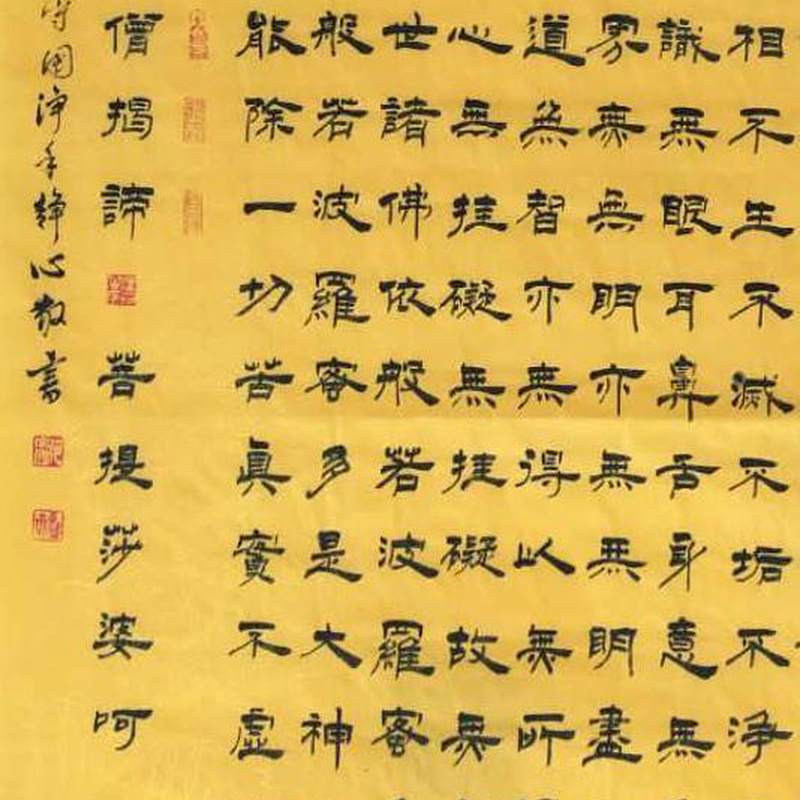 相不生不滅不垢不淨
識無眼耳鼻舌身意無
界無無明亦無無明盡
道無智亦無得以無所
心無挂礙無挂礙故無
世諸佛依般若波羅蜜
般若波羅蜜多是大神
能除一切苦真實不虛
僧揭諦
菩提莎婆呵
心敬書